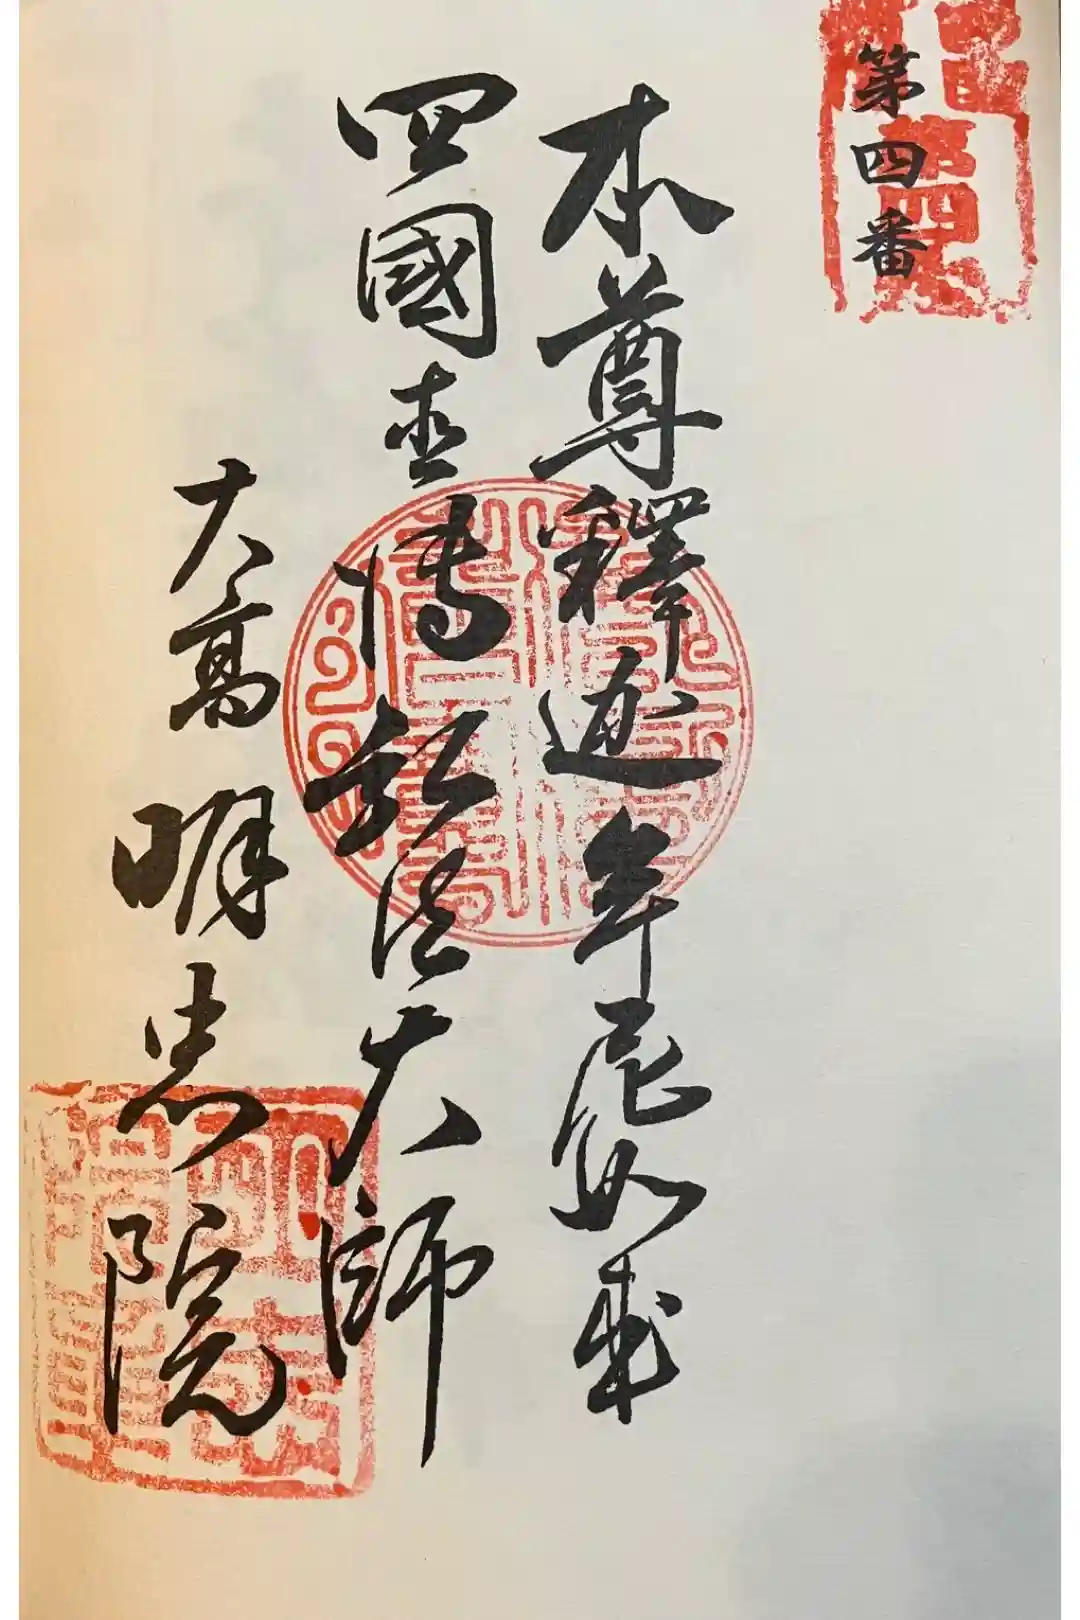 第四番
本尊釋迦牟尼如来
四國直傳弘法大師
大高明忠院